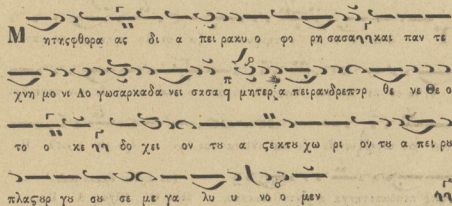 Μ ητηςφθορα ας δι α πειρακυ ο φο ρη σασα και παν τε
χνη μο νι λο γωσαρκαδα νει σασα μητερ α πειρανδρεπαρ θε νε Θε ο
το ο κε δο χει ον του α ςεκτυ χω ρι ον του α πει ρυ
πλαςυργυ συ σε με γα λυ υ νο ο μεν